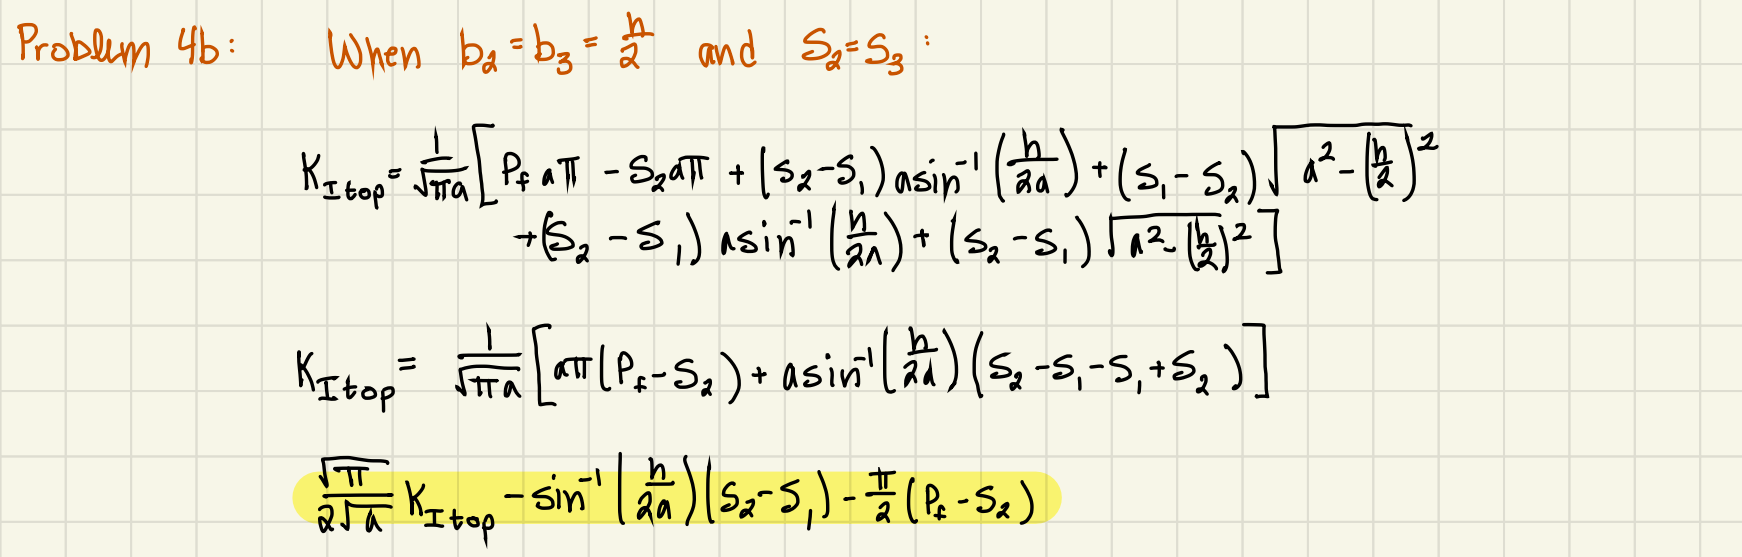 Problem 4b: When b₂ = b₃ = h/2 and S₂ = S₃ :
K_Itop = 1/√(πa) [ P_f aπ − S₂aπ + (S₂−S₁) a sin⁻¹(h/2a) + (S₁ − S₂) √(a² − (h/2)²)
+ (S₂ − S₁) a sin⁻¹(h/2a) + (S₂ − S₁) √(a² − (h/2)²) ]
K_Itop = 1/√(πa) [ aπ(P_f − S₂) + a sin⁻¹(h/2a) (S₂ − S₁ − S₁ + S₂) ]
√π/(2√a) K_Itop − sin⁻¹(h/2a)(S₂−S₁) − π/2 (P_f − S₂)